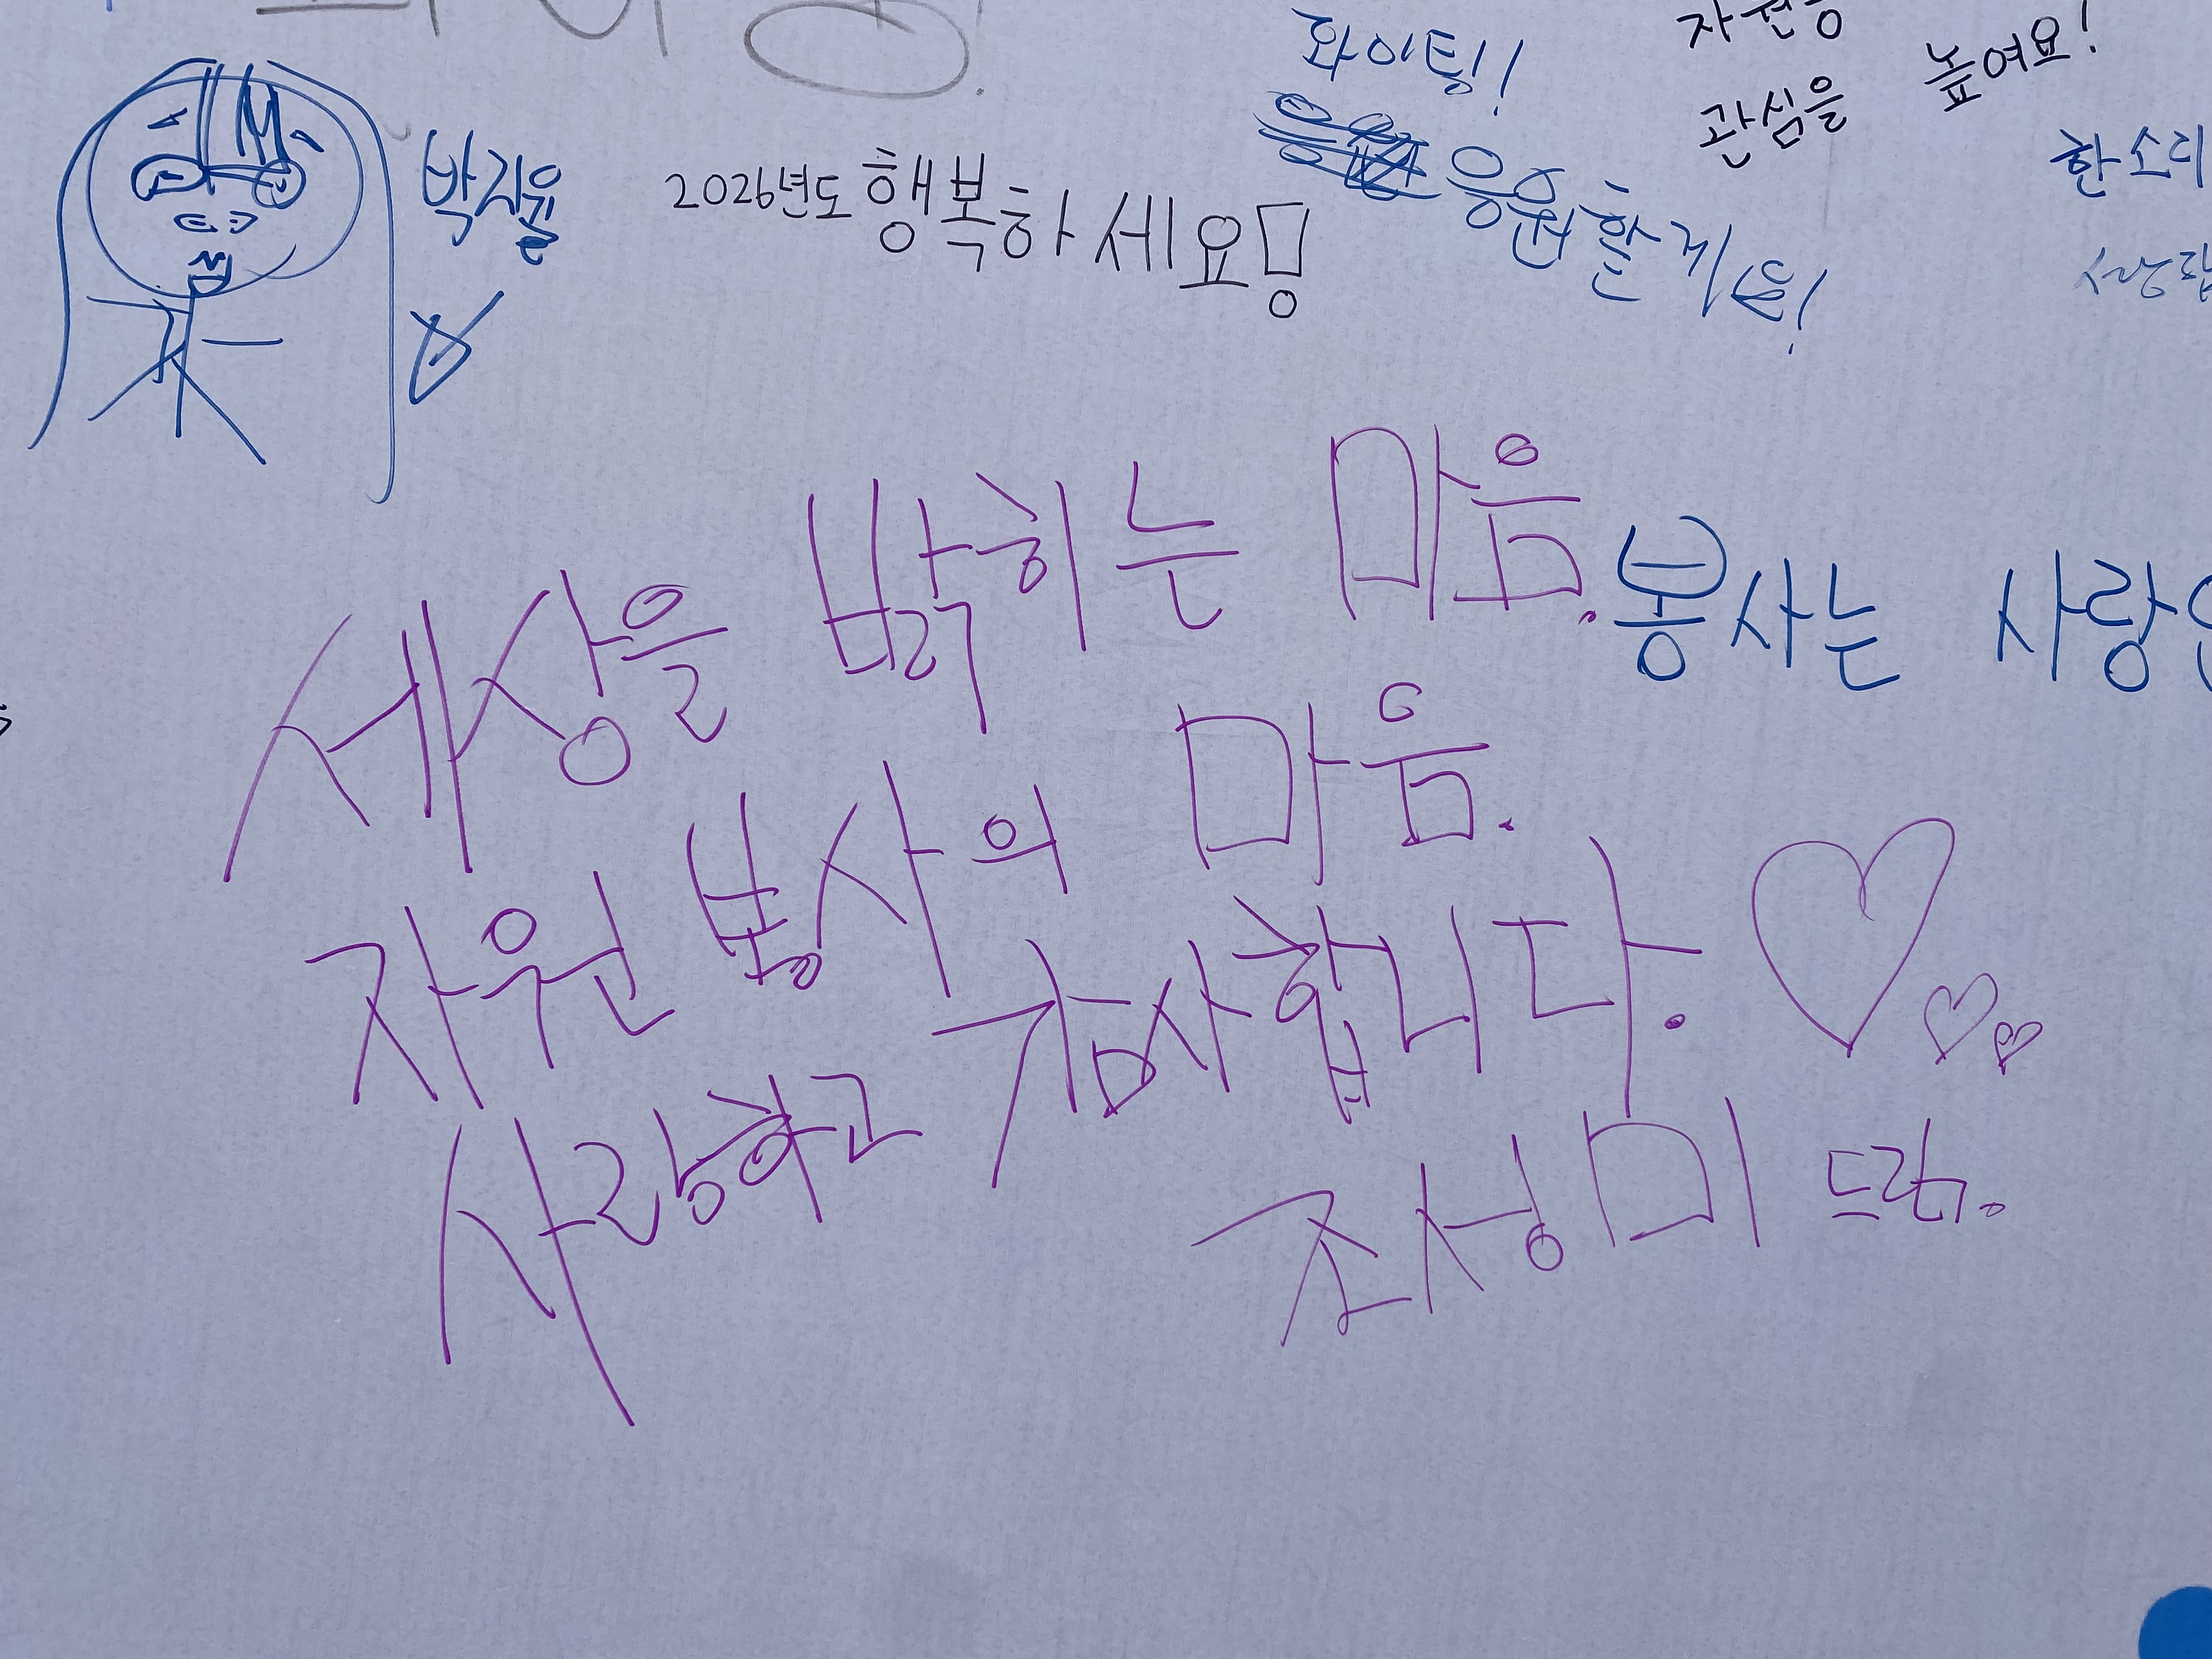 화이팅!
관심을 높여요!
박지율
2026년도 행복하세요!
응원할게요!
한소리
세상을 밝히는 마음.
봉사는 사랑
자원봉사의 마음.
사랑하고 감사합니다.
조성미 드림.